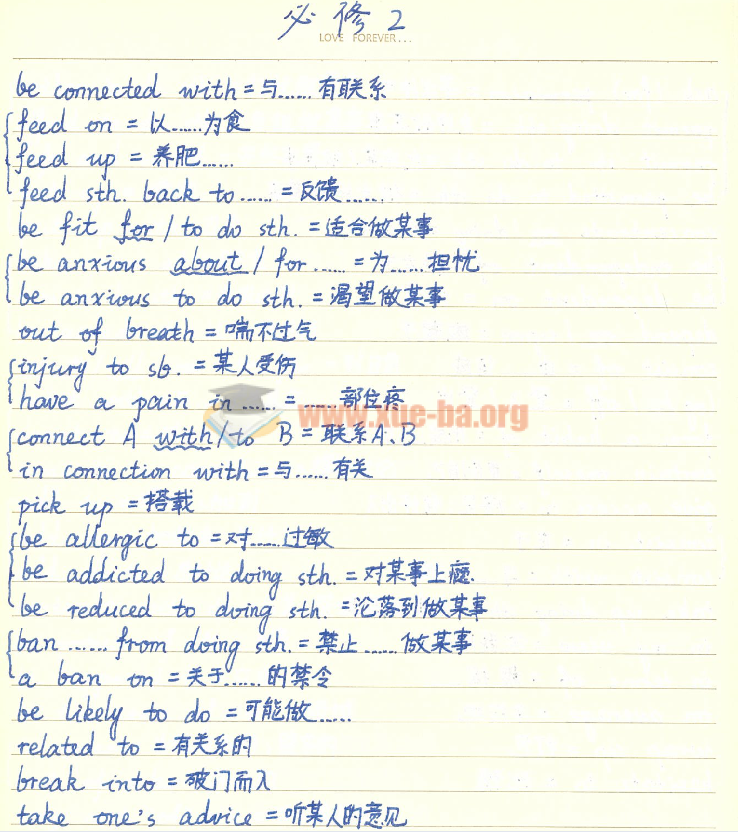 必修2
LOVE FOREVER...
be connected with = 与......有联系
feed on = 以......为食
feed up = 养肥......
feed sth. back to ...... = 反馈......
be fit for / to do sth. = 适合做某事
be anxious about / for ...... = 为......担忧
be anxious to do sth. = 渴望做某事
out of breath = 喘不过气
injury to sb. = 某人受伤
have a pain in ...... = ......部位疼
www.xue-ba.org
connect A with/to B = 联系A、B
in connection with = 与......有关
pick up = 搭载
be allergic to = 对......过敏
be addicted to doing sth. = 对某事上瘾.
be reduced to doing sth. = 沦落到做某事
ban ...... from doing sth. = 禁止......做某事
a ban on = 关于......的禁令
be likely to do = 可能做......
related to = 有关系的
break into = 破门而入
take one's advice = 听某人的意见